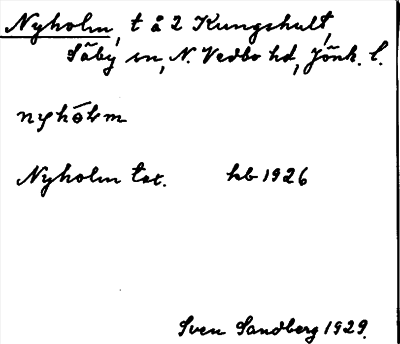 Nyholm, t å 2 Kungshult,
Säby sn, N. Vedbo hd, Jönk. l.
nyhólm
Nyholm tot. hb 1926
Sven Sandberg 1929.